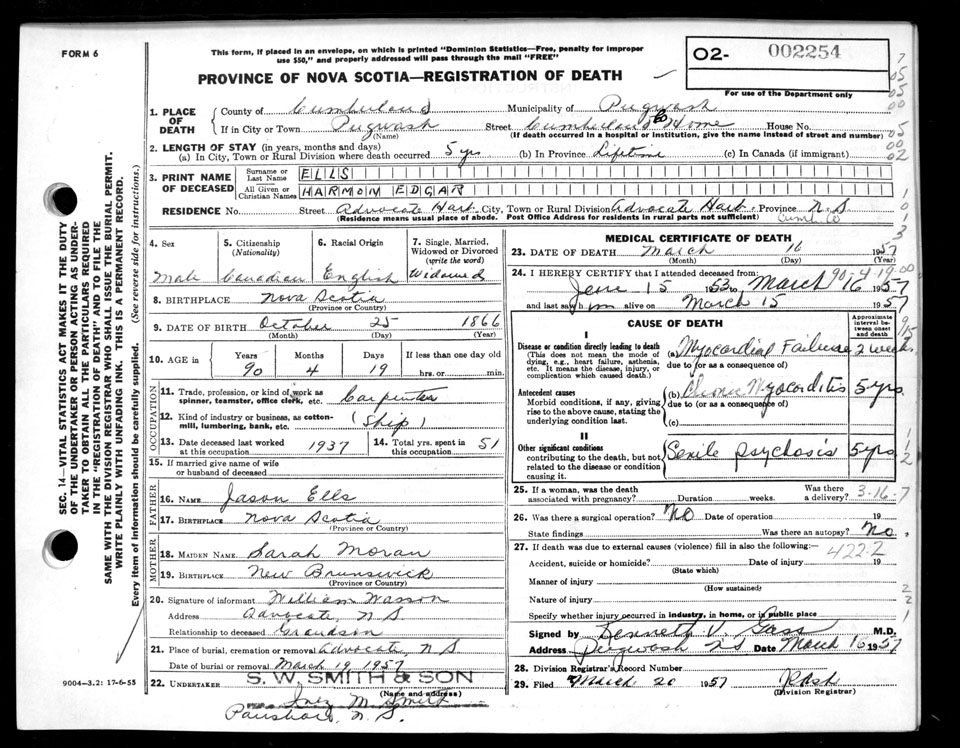 FORM 6
This form, if placed in an envelope, on which is printed "Dominion Statistics—Free, penalty for improper
use $50," and properly addressed will pass through the mail "FREE"
PROVINCE OF NOVA SCOTIA—REGISTRATION OF DEATH
O2- 002254
For use of the Department only
SEC. 14—VITAL STATISTICS ACT MAKES IT THE DUTY
OF THE UNDERTAKER OR PERSON ACTING AS UNDER-
TAKER TO OBTAIN ALL THE PARTICULARS REQUIRED
IN THE "REGISTRATION OF DEATH" AND TO FILE THE
SAME WITH THE DIVISION REGISTRAR WHO SHALL ISSUE THE BURIAL PERMIT.
WRITE PLAINLY WITH UNFADING INK. THIS IS A PERMANENT RECORD.
Every item of information should be carefully supplied. (See reverse side for instructions.)
1. PLACE OF DEATH
County of Cumberland Municipality of Pugwash
If in City or Town Pugwash Street Cumberland Co Home House No.
(Name) (If death occurred in a hospital or institution, give the name instead of street and number)
2. LENGTH OF STAY (in years, months and days)
(a) In City, Town or Rural Division where death occurred 5 yrs (b) In Province Lifetime (c) In Canada (if immigrant)
3. PRINT NAME OF DECEASED
Surname or Last Name ELLS
All Given or Christian Names HARMON EDGAR
RESIDENCE No. Street Advocate Harb. City, Town or Rural Division Advocate Harb. Province N.S
(Residence means usual place of abode. Post Office Address for residents in rural parts not sufficient) Cumb. Co
4. Sex Male
5. Citizenship (Nationality) Canadian
6. Racial Origin English
7. Single, Married, Widowed or Divorced (write the word) Widowed
8. BIRTHPLACE Nova Scotia
(Province or Country)
9. DATE OF BIRTH October 25 1866
(Month) (Day) (Year)
10. AGE IN Years Months Days If less than one day old
90 4 19 hrs. or min.
OCCUPATION
11. Trade, profession, or kind of work as spinner, teamster, office clerk, etc. Carpenter
12. Kind of industry or business, as cotton-mill, lumbering, bank, etc. (Ship)
13. Date deceased last worked at this occupation 1937
14. Total yrs. spent in this occupation 51
15. If married give name of wife or husband of deceased
FATHER
16. NAME Jason Ells
17. BIRTHPLACE Nova Scotia
(Province or Country)
MOTHER
18. MAIDEN NAME Sarah Moran
19. BIRTHPLACE New Brunswick
(Province or Country)
20. Signature of informant William Wasson
Address Advocate, N S
Relationship to deceased Grandson
21. Place of burial, cremation or removal Advocate, N S
Date of burial or removal March 19, 1957
22. UNDERTAKER S. W. SMITH & SON
(Name and address)
Inez M Smith
N. S.
9004-3.2: 17-6-55
MEDICAL CERTIFICATE OF DEATH
23. DATE OF DEATH March 16 1957
(Month) (Day)
90-4-19
24. I HEREBY CERTIFY that I attended deceased from:
15 1953 to March 16 1957
and last saw him alive on March 15 1957
CAUSE OF DEATH
Approximate interval between onset and death
I
Disease or condition directly leading to death
(This does not mean the mode of dying, e.g., heart failure, asthenia, etc. It means the disease, injury, or complication which caused death.)
(a) Myocardial Failure 2 weeks
due to (or as a consequence of)
Antecedent causes
Morbid conditions, if any, giving rise to the above cause, stating the underlying condition last.
(b) Chronic Myocarditis 5 yrs
due to (or as a consequence of)
(c)
II
Other significant conditions
contributing to the death, but not related to the disease or condition causing it.
Senile psychosis 5 yrs
25. If a woman, was the death associated with pregnancy? Duration weeks. Was there a delivery? 3-16-7
26. Was there a surgical operation? No Date of operation 19
State findings Was there an autopsy? No.
27. If death was due to external causes (violence) fill in also the following:— 422.2
Accident, suicide or homicide? Date of injury 19
(State which)
Manner of injury
(How sustained)
Nature of injury
Specify whether injury occurred in industry, in home, or in public place
Signed by Kenneth V. Gass M.D.
Address Pugwash NS Date March 16 1957
28. Division Registrar's Record Number
29. Filed March 20 1957
(Division Registrar)